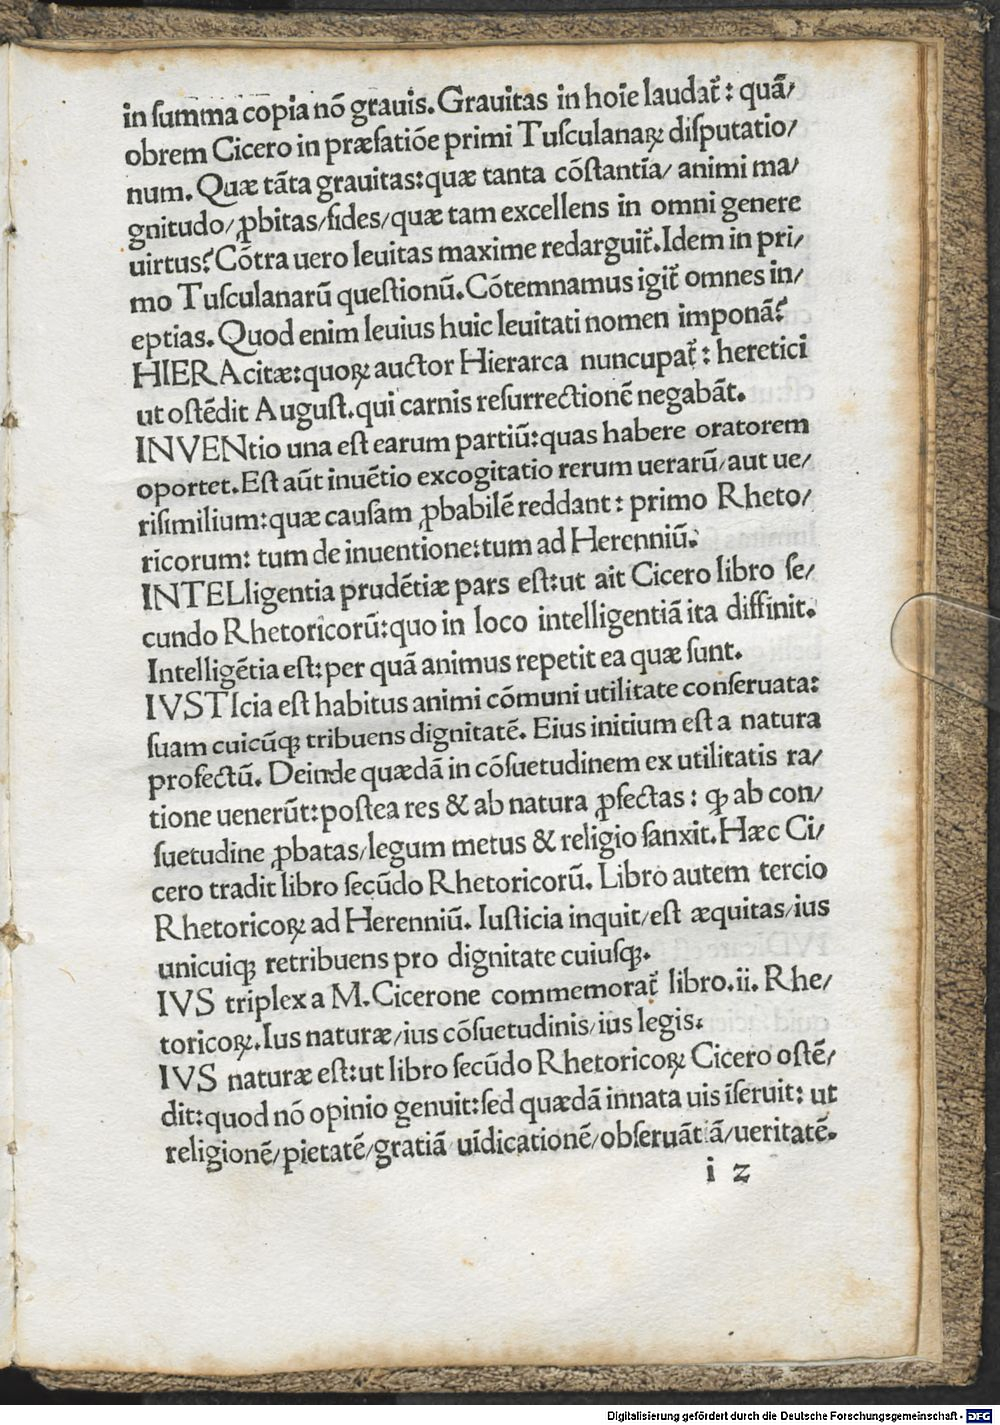 in ſumma copia nõ grauis. Grauitas in hoīe laudat᷑ : quã/
obrem Cicero in præfatiõe primi Tuſculanaꝝ diſputatio/
num. Quæ tãta grauitas: quæ tanta cõſtantia/ animi ma/
gnitudo/ ꝓbitas/ fides/ quæ tam excellens in omni genere
uirtus? Cõtra uero leuitas maxime redarguit᷑. Idem in pri/
mo Tuſculanarũ queſtionũ. Cõtemnamus igit᷑ omnes in/
eptias. Quod enim leuius huic leuitati nomen imponã?
HIERAcitæ: quoꝝ auctor Hierarca nuncupat᷑ : heretici
ut oſtẽdit Auguſt. qui carnis reſurrectionẽ negabãt.
INVENtio una eſt earum partiũ: quas habere oratorem
oportet. Eſt aũt inuẽtio excogitatio rerum uerarũ/ aut ue/
riſimilium: quæ cauſam ꝓbabilẽ reddant : primo Rheto/
ricorum: tum de inuentione: tum ad Herenniũ.
INTELligentia prudẽtiæ pars eſt: ut ait Cicero libro ſe/
cundo Rhetoricorũ: quo in loco intelligentiã ita diffinit.
Intelligẽtia eſt: per quã animus repetit ea quæ ſunt.
IVSTIcia eſt habitus animi cõmuni utilitate conſeruata:
ſuam cuicũqꝫ tribuens dignitatẽ. Eius initium eſt a natura
profectũ. Deinde quædã in cõſuetudinem ex utilitatis ra/
tione uenerũt: poſtea res & ab natura ꝓfectas : qꝫ ab con/
ſuetudine ꝓbatas/ legum metus & religio ſanxit. Hæc Ci/
cero tradit libro ſecũdo Rhetoricorũ. Libro autem tercio
Rhetoricoꝝ ad Herenniũ. Iuſticia inquit/ eſt æquitas/ ius
unicuiqꝫ retribuens pro dignitate cuiuſqꝫ.
IVS triplex a M. Cicerone commemorat᷑ libro. ii. Rhe/
toricoꝝ. Ius naturæ/ ius cõſuetudinis/ ius legis.
IVS naturæ eſt: ut libro ſecũdo Rhetoricoꝝ Cicero oſtẽ/
dit: quod nõ opinio genuit: ſed quædã innata uis īſeruit: ut
religionẽ/ pietatẽ/ gratiã uīdicationẽ/ obſeruãtiã/ ueritatẽ.
i 2
Digitalisierung gefördert durch die Deutsche Forschungsgemeinschaft - DFG